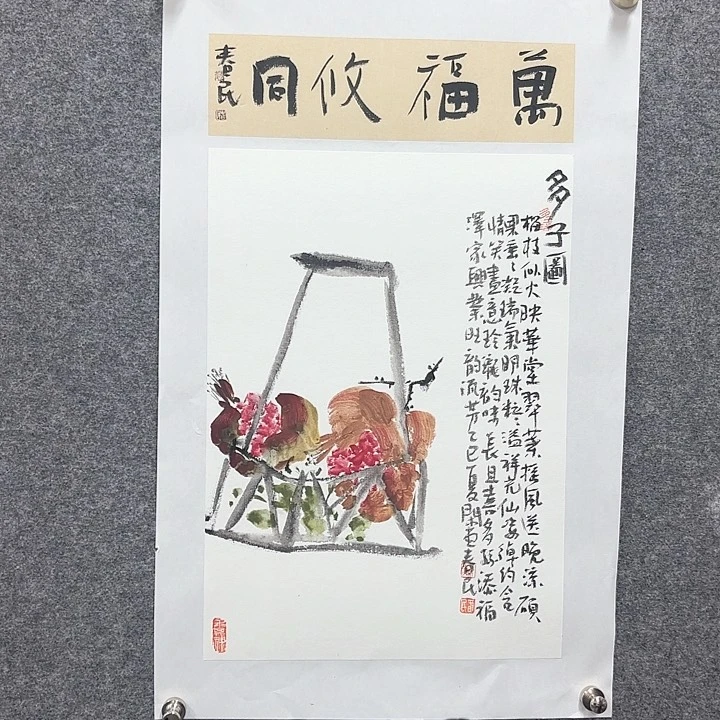 萬福攸同
春民
多子圖
榴枝似火映華堂翠葉搖風送晚涼碩
果垂〻凝瑞氣明珠粒〻溢祥光仙姿綽約含
情笑畫意玲瓏韵味長且喜多孫添福
澤家興業旺韵流芳乙巳夏閑畫春民